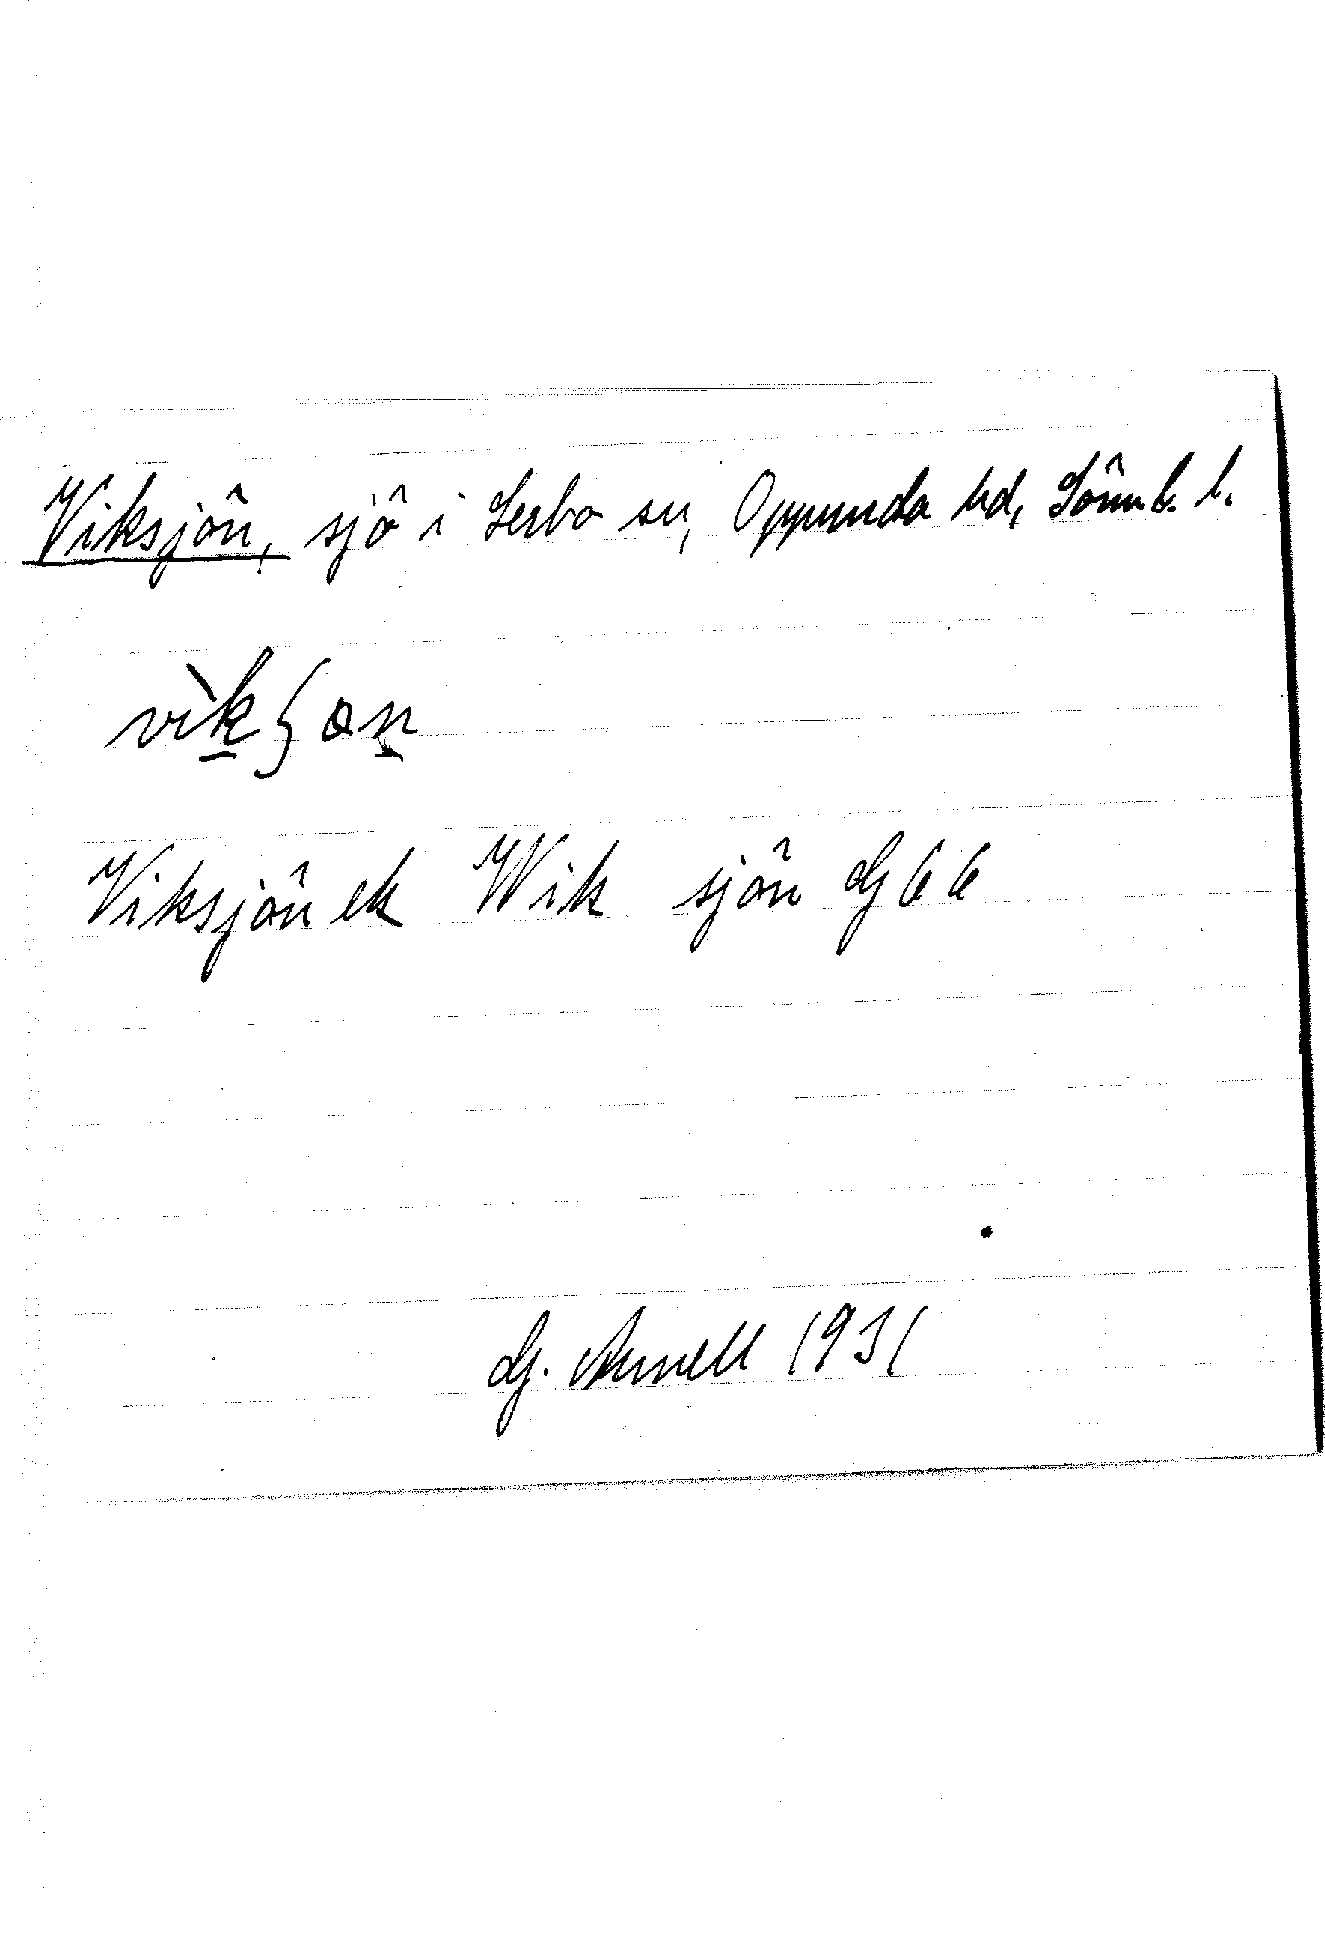 Viksjön, sjö i Lerbo sn, Oppunda hd, Sörml. l.
vìkʃøn
Viksjön ek Wik sjön G 66
G. Arnell 1931